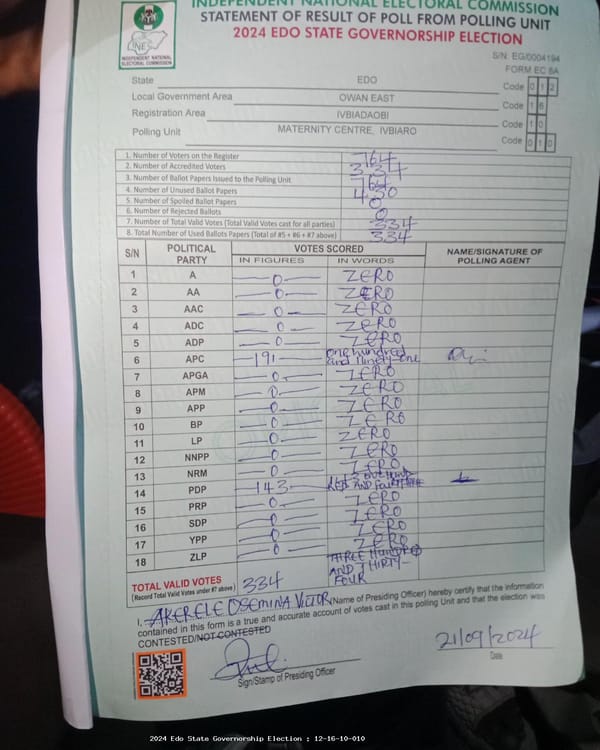 INDEPENDENT NATIONAL ELECTORAL COMMISSION
STATEMENT OF RESULT OF POLL FROM POLLING UNIT
2024 EDO STATE GOVERNORSHIP ELECTION
INEC
INDEPENDENT NATIONAL ELECTORAL COMMISSION
S/N: EG/0004194
FORM EC 8A
State EDO Code 0 1 2
Local Government Area OWAN EAST Code 1 6
Registration Area IVBIADAOBI Code 1 0
Polling Unit MATERNITY CENTRE, IVBIARO Code 0 1 0
1. Number of Voters on the Register 764
2. Number of Accredited Voters 334
3. Number of Ballot Papers Issued to the Polling Unit 764
4. Number of Unused Ballot Papers 430
5. Number of Spoiled Ballot Papers 0
6. Number of Rejected Ballots 0
7. Number of Total Valid Votes (Total Valid Votes cast for all parties) 334
8. Total Number of Used Ballots Papers (Total of #5 + #6 + #7 above) 334
S/N POLITICAL PARTY VOTES SCORED NAME/SIGNATURE OF POLLING AGENT
IN FIGURES IN WORDS
1 A 0 ZERO
2 AA 0 ZERO
3 AAC 0 ZERO
4 ADC 0 ZERO
5 ADP 0 ZERO
6 APC 191 one hundred and Ninety-one
7 APGA 0 ZERO
8 APM 0 ZERO
9 APP 0 ZERO
10 BP 0 ZERO
11 LP 0 ZERO
12 NNPP 0 ZERO
13 NRM 0 ZERO
14 PDP 143 AND
15 PRP 0 ZERO
16 SDP 0 ZERO
17 YPP 0 ZERO
18 ZLP 0 ZERO
TOTAL VALID VOTES 334 THREE HUNDRED AND THIRTY-FOUR
(Record Total Valid Votes under #7 above)
I, AKERELE OSEMINA VICTOR (Name of Presiding Officer) hereby certify that the information
contained in this form is a true and accurate account of votes cast in this polling Unit and that the election was
CONTESTED/NOT CONTESTED
21/09/2024
Sign/Stamp of Presiding Officer Date
2024 Edo State Governorship Election : 12-16-10-010